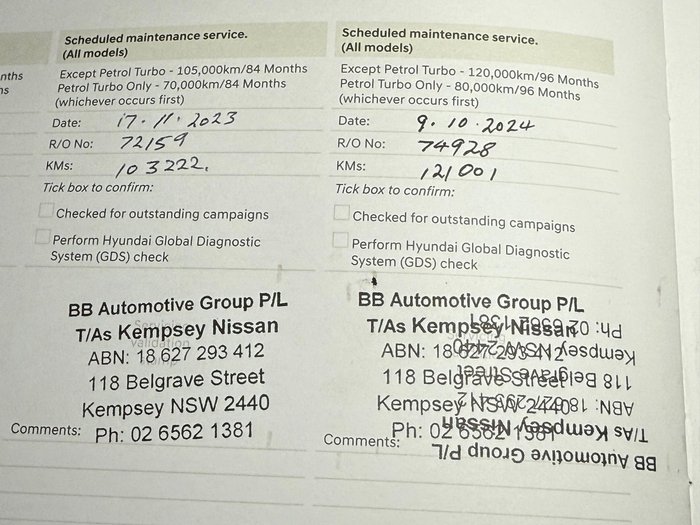 nths
ns
Scheduled maintenance service.
(All models)
Except Petrol Turbo - 105,000km/84 Months
Petrol Turbo Only - 70,000km/84 Months
(whichever occurs first)
Date: 17.11.2023
R/O No: 72159
KMs: 103222.
Tick box to confirm:
Checked for outstanding campaigns
Perform Hyundai Global Diagnostic
System (GDS) check
BB Automotive Group P/L
T/As Kempsey Nissan
ABN: 18 627 293 412
118 Belgrave Street
Kempsey NSW 2440
Comments: Ph: 02 6562 1381
Scheduled maintenance service.
(All models)
Except Petrol Turbo - 120,000km/96 Months
Petrol Turbo Only - 80,000km/96 Months
(whichever occurs first)
Date: 9.10.2024
R/O No: 74928
KMs: 121001
Tick box to confirm:
Checked for outstanding campaigns
Perform Hyundai Global Diagnostic
System (GDS) check
BB Automotive Group P/L
T/As Kempsey Nissan
ABN: 18 627 293 412
118 Belgrave Street
Kempsey NSW 2440
Ph: 02 6562 1381
Comments:
BB Automotive Group P/L
T/As Kempsey Nissan
ABN: 18 627 293 412
118 Belgrave Street
Kempsey NSW 2440
Ph: 02 6562 1381